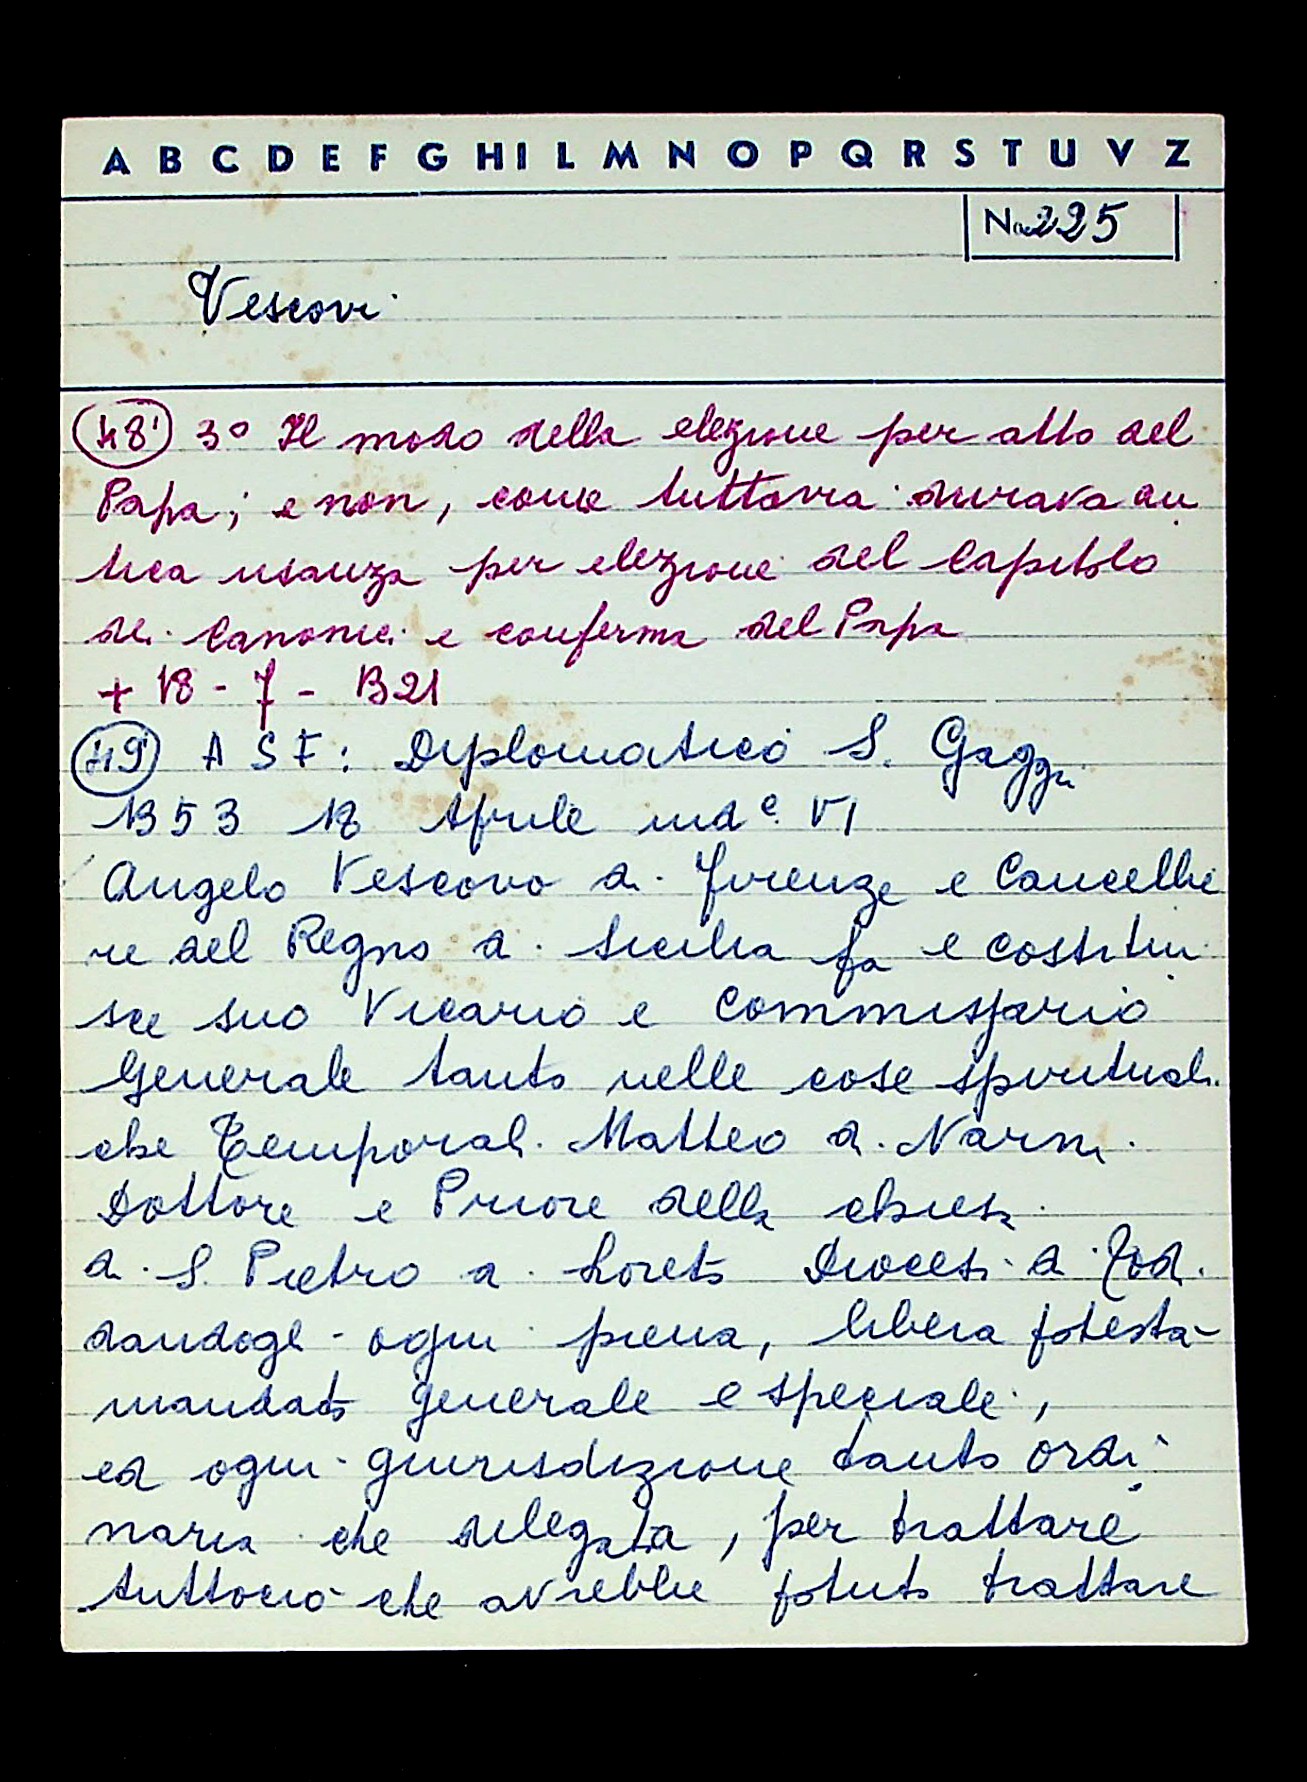 A B C D E F G H I L M N O P Q R S T U V Z
No. 225
Vescovi
48' 3° Il modo della elezione per atto del
Papa; e non, come tuttavia durava an
tica usanza per elezione del Capitolo
dei Canonici e conferma del Papa
+ 18 - 7 - B21
49' A S F: Diplomatico S. Gaggi
1353 18 Aprile ind e. VI
Angelo Vescovo di Firenze e Cancellie
re del Regno di Sicilia fa e costitui
sce suo Vicario e Commissario
Generale tanto nelle cose spirituali
che Temporali Matteo di Narni
Dottore e Priore della chiesa
di S. Pietro a Loreto Diocesi di Todi
dandogli ogni piena, libera potestà
mandato generale e speciale,
ed ogni giurisdizione tanto ordi
naria che delegata, per trattare
tuttociò che avrebbe potuto trattare